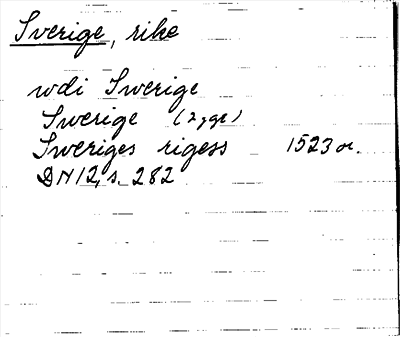 Sverige, rike
wdi Swerige
Swerige (2, gr)
Sweriges rigess 1523 or.
DN 12, s. 282